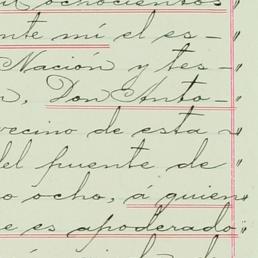 il ochocientos
nte mí el es-
Nación y tes-
n, Don Anto-
vecino de esta
del puente de
o ocho, á quien
e es apoderado